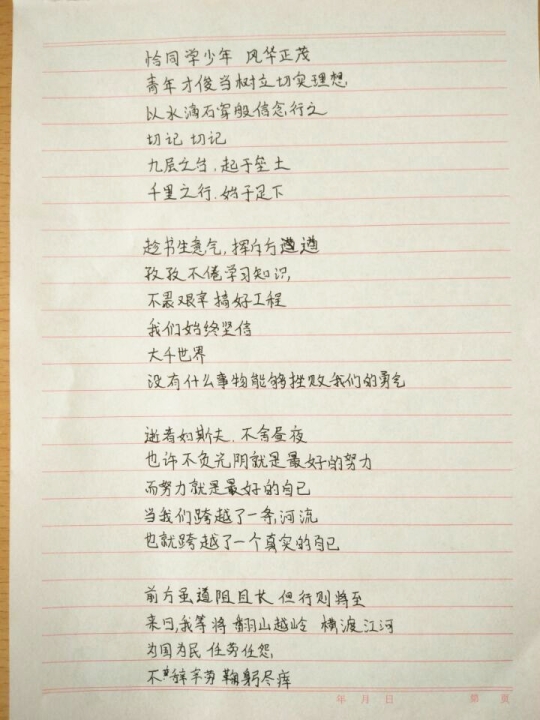 恰同学少年 风华正茂
青年才俊当树立切实理想
以水滴石穿般信念行之
切记 切记
九层之台,起于垒土
千里之行,始于足下
趁书生意气,挥斥方遒
孜孜不倦学习知识,
不畏艰辛搞好工程
我们始终坚信
大千世界
没有什么事物能够挫败我们的勇气
逝者如斯夫,不舍昼夜
也许不负光阴就是最好的努力
而努力就是最好的自己
当我们跨越了一条河流
也就跨越了一个真实的自己
前方虽道阻且长 但行则将至
来日,我等将翻山越岭 横渡江河
为国为民 任劳任怨,
不辞辛劳 鞠躬尽瘁
年 月 日 第 页